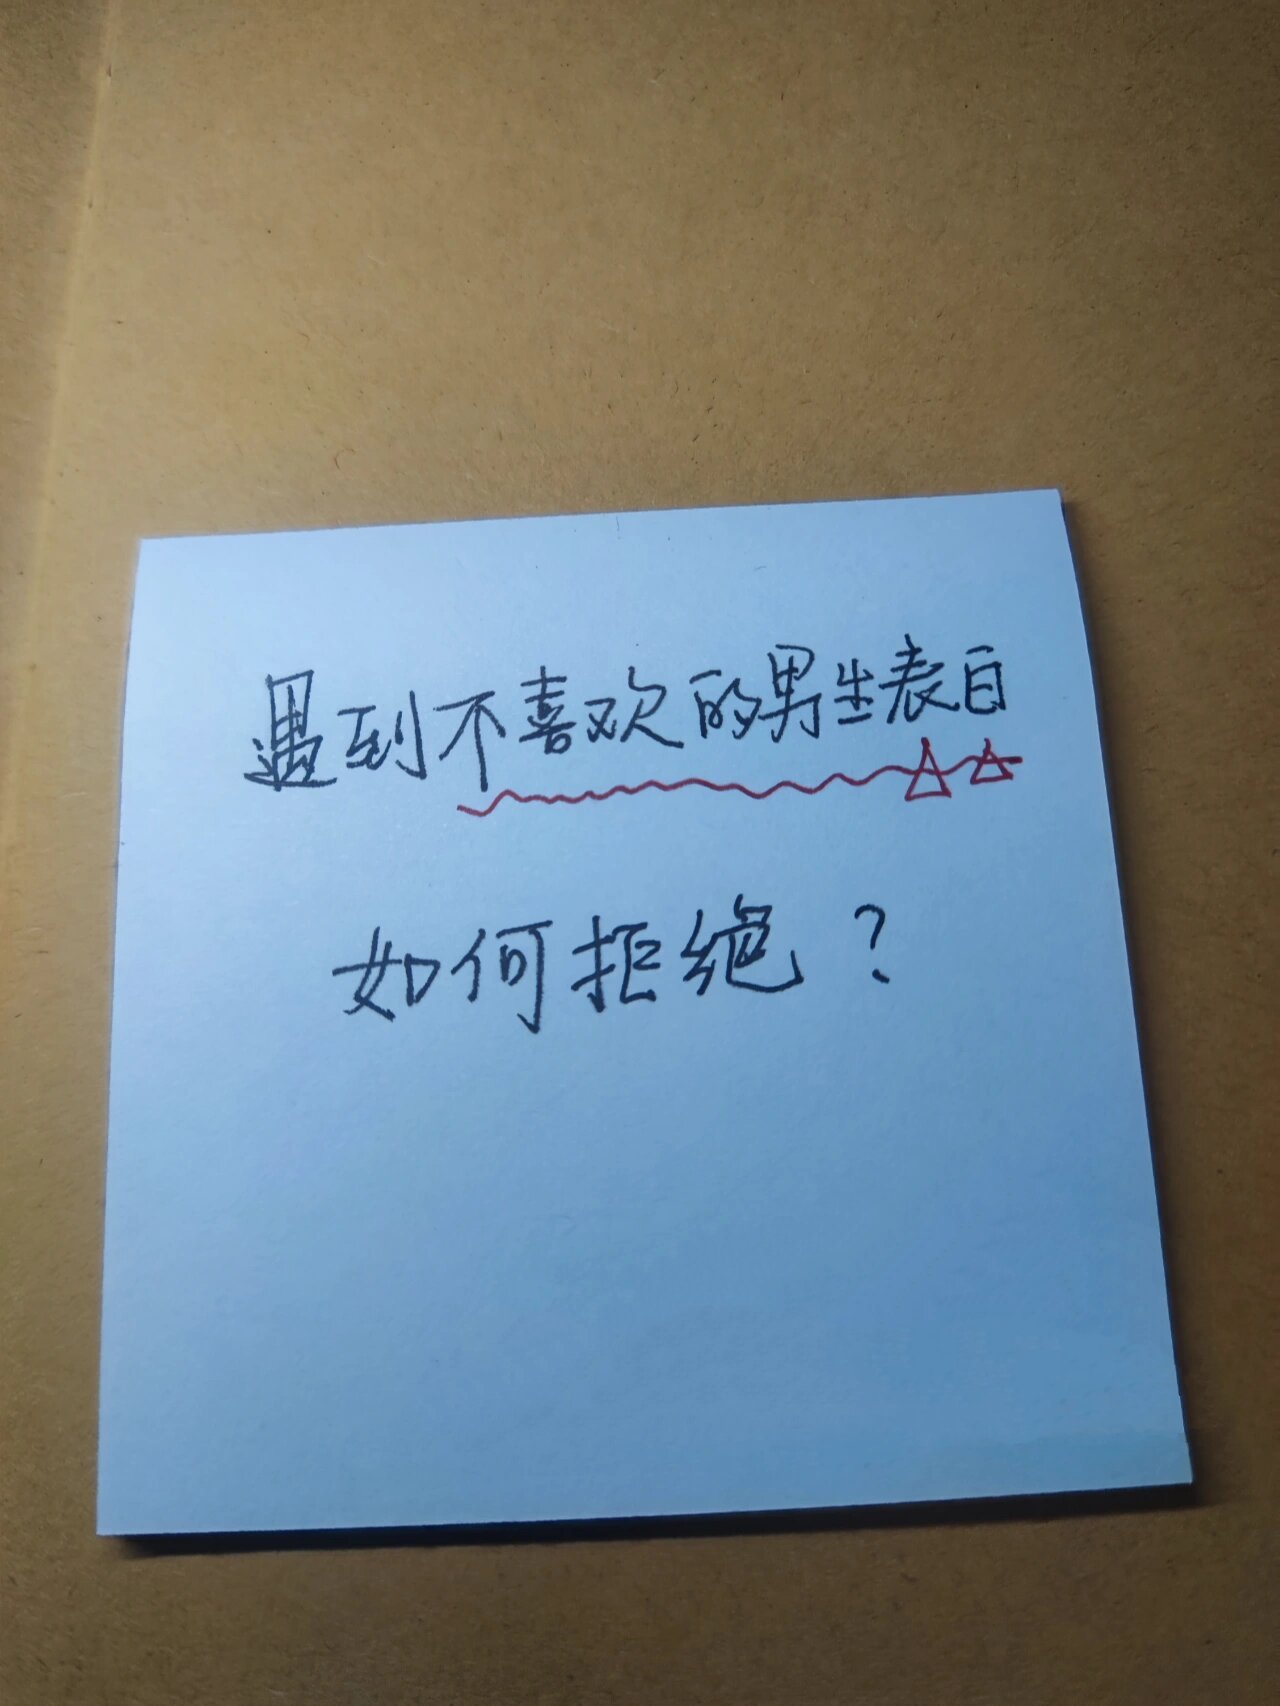 遇到不喜欢的男生表白
如何拒绝？